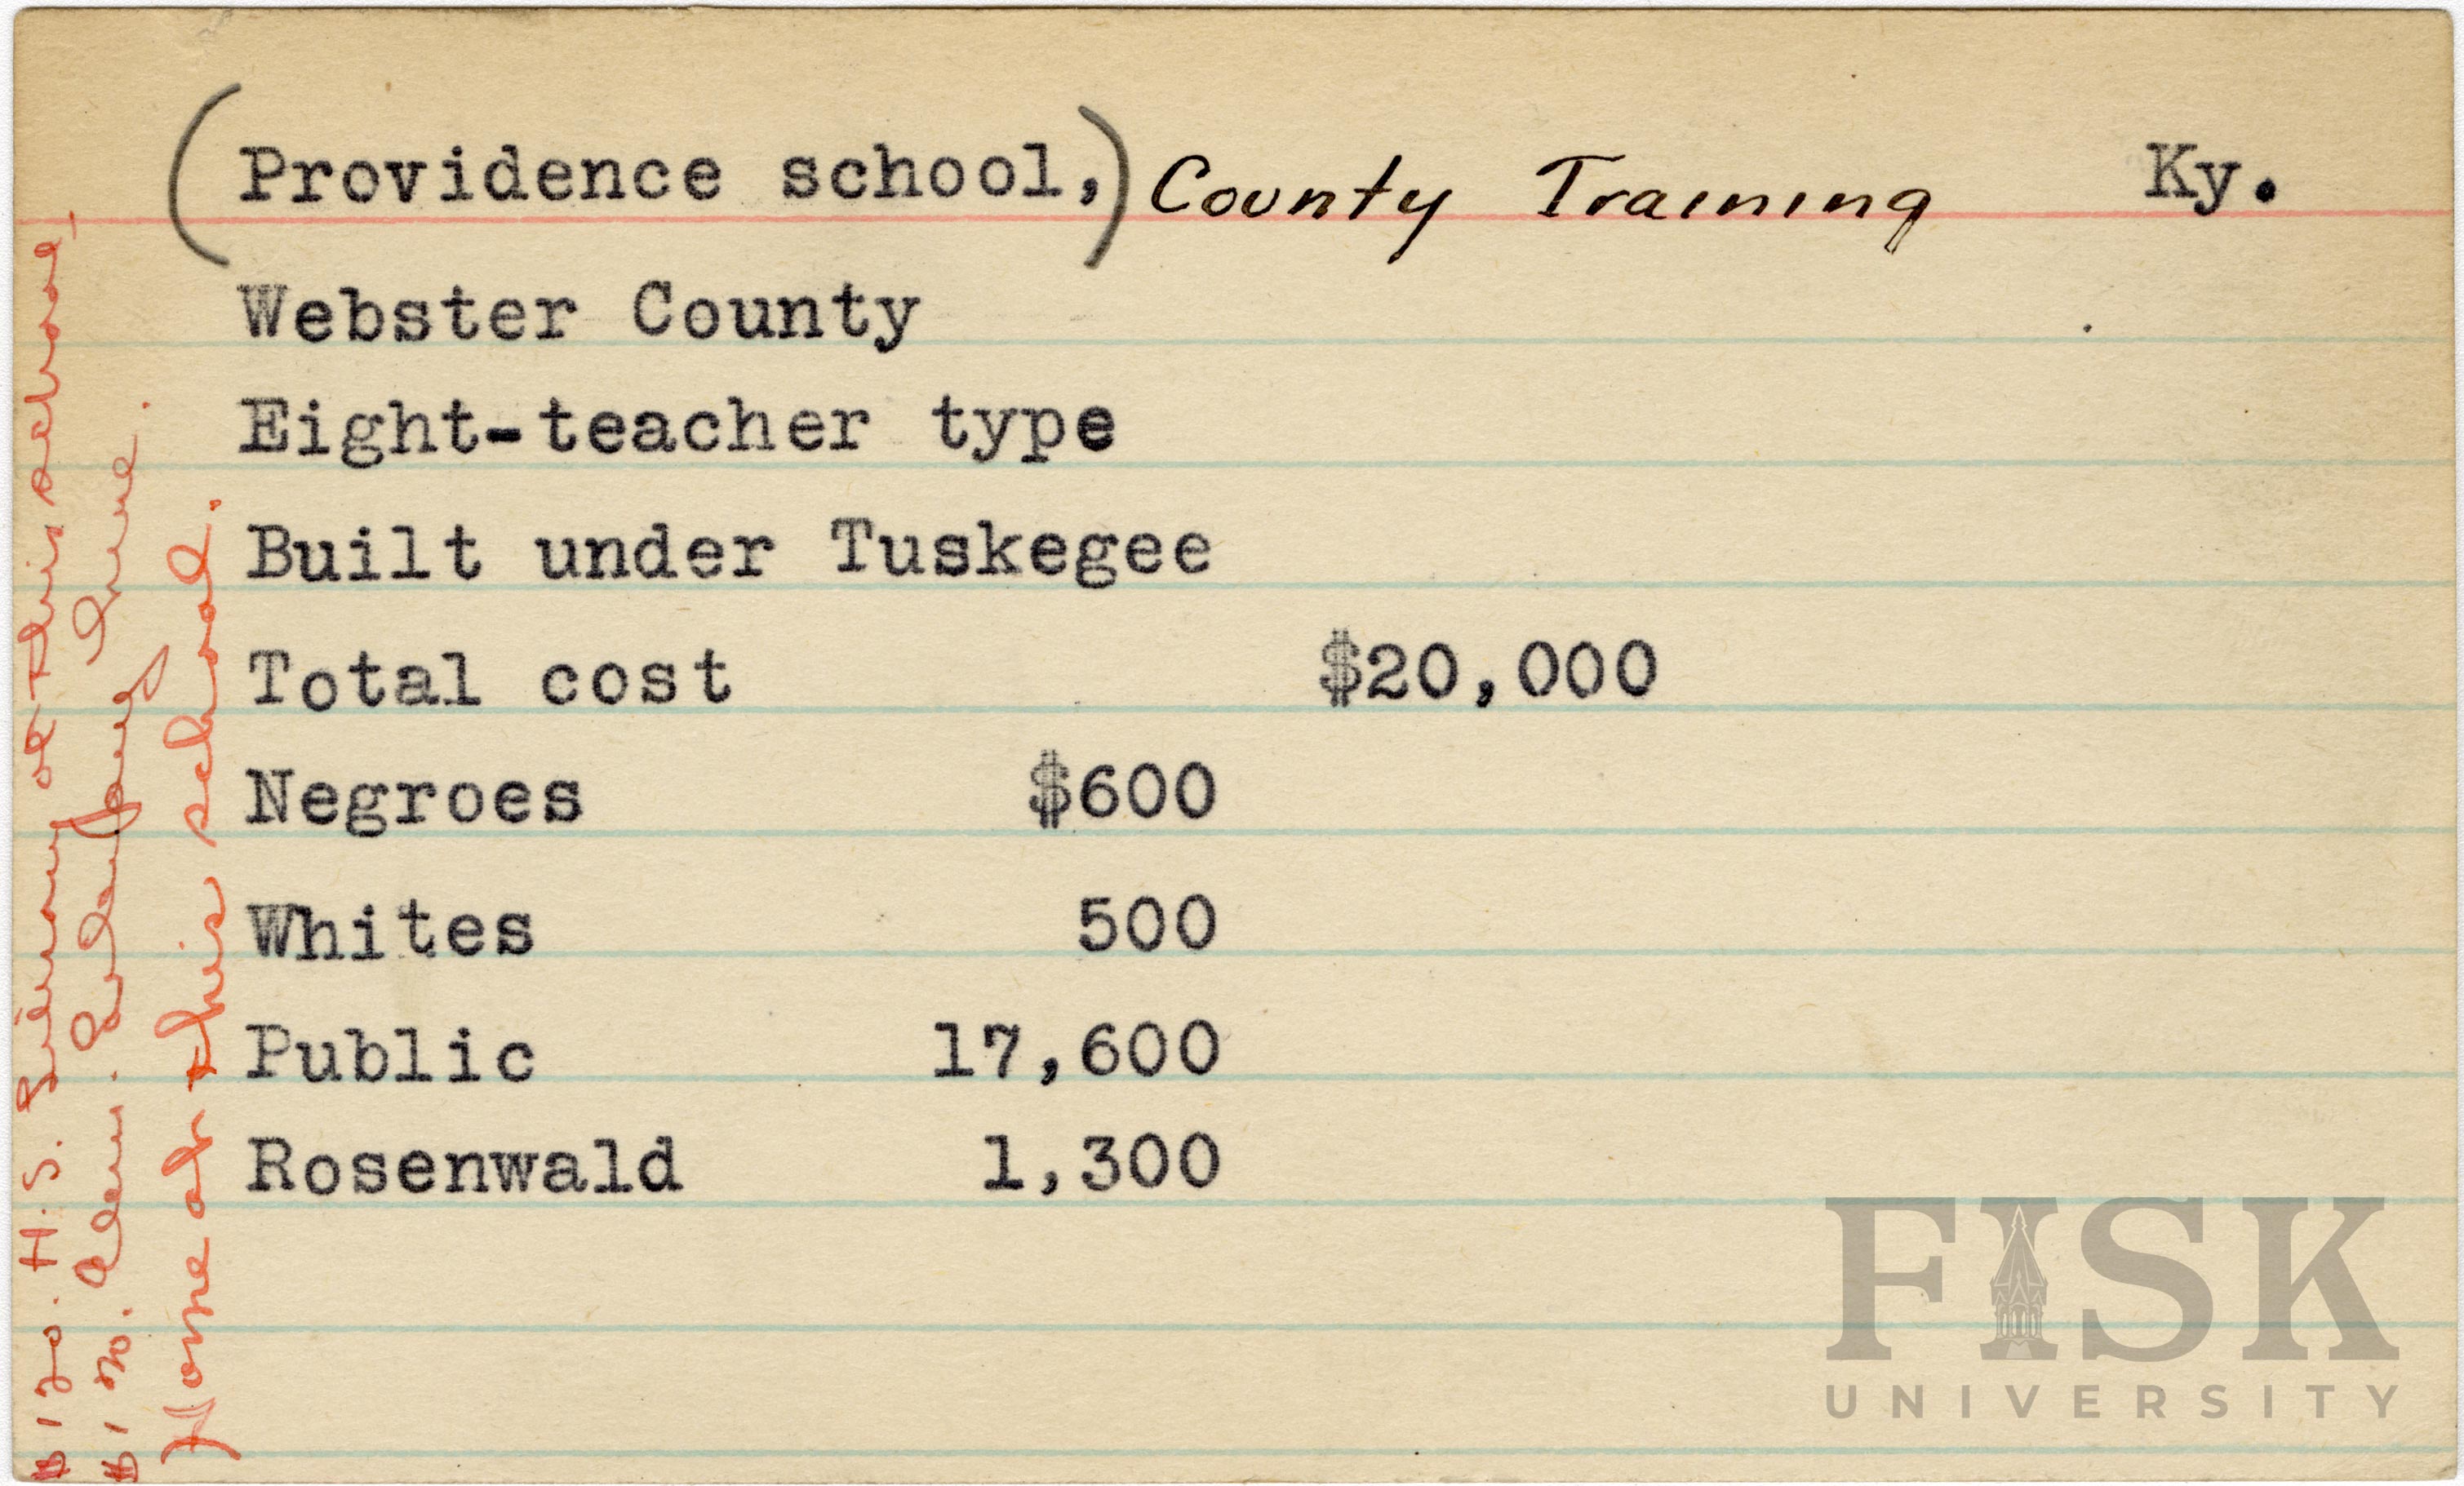 (Providence school,) County Training Ky.
Webster County
Eight-teacher type
Built under Tuskegee
Total cost $20,000
Negroes $600
Whites 500
Public 17,600
Rosenwald 1,300
$120. H.S. Library at this school,
$120. Elem. Library here.
Home at this school.
FISK
UNIVERSITY